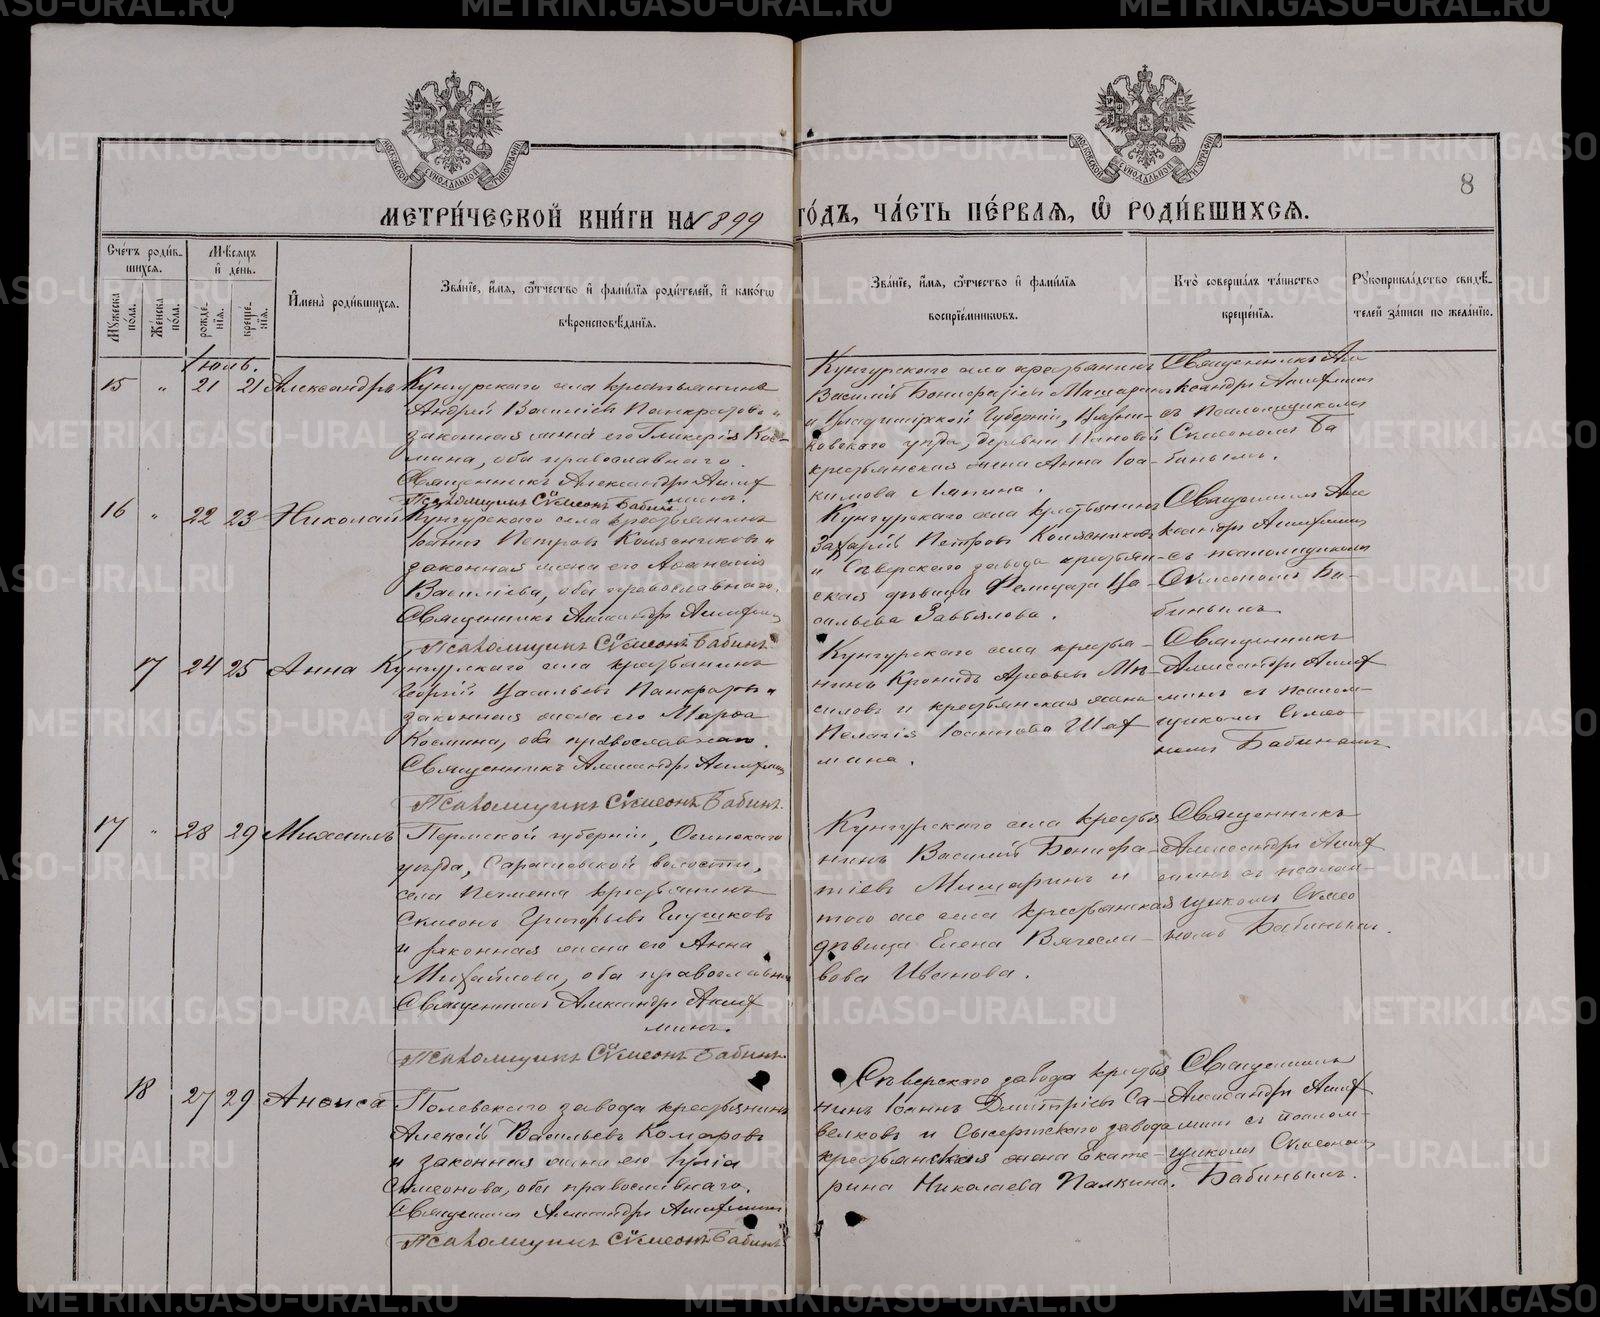 METRIKI.GASO-URAL.RU
МОСКОВСКОЙ СѴНОДАЛЬНОЙ ТИПОГРАФІИ
МОСКОВСКОЙ СѴНОДАЛЬНОЙ ТИПОГРАФІИ
8
МЕТРИ́ЧЕСКОЙ КНИ́ГИ НА 1899 ГО́ДЪ, ЧА́СТЬ ПЕ́РВАѦ, Ѡ҆ РОДИ́ВШИХСѦ.
Сче́тъ роди́в-
шихсѧ.
Мꙋ́жеска по́ла.
Же́нска по́ла.
Мѣ́сѧцъ и҆ де́нь.
рожде́-
нїѧ.
креще́-
нїѧ.
И҆мена̀ роди́вшихсѧ.
Зва́нїе, и҆́мѧ, ѻ҆́тчество и҆ фами́лїѧ роди́телей, и҆ како́гѡ
вѣроисповѣ́данїѧ.
Зва́нїе, и҆́мѧ, ѻ҆́тчество и҆ фами́лїѧ
воспрїе́мникѡвъ.
Кто̀ соверша́лъ та́инство
креще́нїѧ.
Рꙋкоприкла́дство свидѣ́-
телей за́писи по жела́нїю.
Іюль.
15 " 21 21 Александръ
Кунгурскаго села крестьянинъ
Андрей Василіевъ Панкратовъ и
законная жена его Гликерія Кос-
мина, оба православнаго.
Священникъ Александръ Ашиф
минъ.
Псаломщикъ Сѵмеонъ Бабинъ
Кунгурскаго села крестьянинъ
Василій Бонифатіевъ Мишаринъ
и Владимірской губерніи, Вязни-
ковскаго уезда, деревни Пановой
крестьянская жена Анна Іоа-
кимова Ляпина.
Священникъ Але
ксандръ Ашифминъ
съ псаломщикомъ
Симеономъ Ба
бинымъ.
16 " 22 23 Николай
Кунгурскаго села крестьянинъ
Іоаннъ Петровъ Колясниковъ и
законная жена его Афанасія
Василіева, оба православнаго.
Священникъ Александръ Ашифминъ
Псаломщикъ Сѵмеонъ Бабинъ.
Кунгурскаго села крестьянинъ
Захарій Петровъ Колясниковъ
и Сѣверскаго завода крестьян-
ская дѣвица Ва-
сильева Завьялова.
Священникъ Але
ксандръ Ашифминъ
съ псаломщикомъ
Симеономъ Ба-
бинымъ
17 24 25 Анна
Кунгурскаго села крестьянинъ
Георгій Васильевъ Панкратовъ и
законная жена его Марфа
Космина, оба православнаго.
Священникъ Александръ Ашифминъ
Псаломщикъ Сѵмеонъ Бабинъ.
Кунгурскаго села крестья-
нинъ Кронидъ Мѣ-
силовъ и крестьянская жена
Пелагія Іоаннова Шах
мина.
Священникъ
Александръ Ашиф
минъ съ псалом-
щикомъ Симео-
номъ Бабинымъ
17 " 28 29 Михаилъ
Пермской губерніи, Осинскаго
уѣзда, Сарашевской волости,
села крестьянинъ
Симеонъ Григорьевъ Глушковъ
и законная жена его Анна
Михайлова, оба православн.
Священникъ Александръ Ашиф
минъ.
Псаломщикъ Сѵмеонъ Бабинъ.
Кунгурскаго села крестья
нинъ Василій Бонифа-
тіевъ Мишаринъ и
того же села крестьянская
дѣвица Елена Вячесла-
вова Иванова.
Священникъ
Александръ Ашиф
минъ съ псалом-
щикомъ Симео
номъ Бабинымъ.
18 27 29 Анфиса
Полевскаго завода крестьянинъ
Алексій Васильевъ Комаровъ
и законная жена его Іулія
Симеонова, оба православнаго.
Священникъ Александръ Ашифминъ
Псаломщикъ Сѵмеонъ Бабинъ
Сѣверскаго завода крестья
нинъ Іоаннъ Дмитріевъ Са-
велковъ и Сысертскаго завода
крестьянская жена Екате-
рина Николаева Палкина.
Священникъ
Александръ Ашиф
минъ съ псалом-
щикомъ Симеономъ
Бабинымъ.